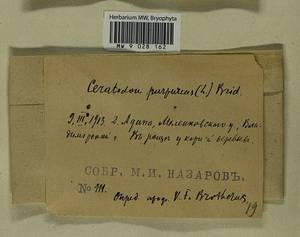 Herbarium MW, Bryophyta
MW 9 028 162
Ceratodon purpureus (L.) Brid.
9.III.1913 д. Адино, Меленковского у., Вла-
димирской г. Въ рощѣ у корней деревьевъ.
СОБР. М. И. НАЗАРОВЪ.
No 111.
Опред. проф. V. F. Brotherus
19